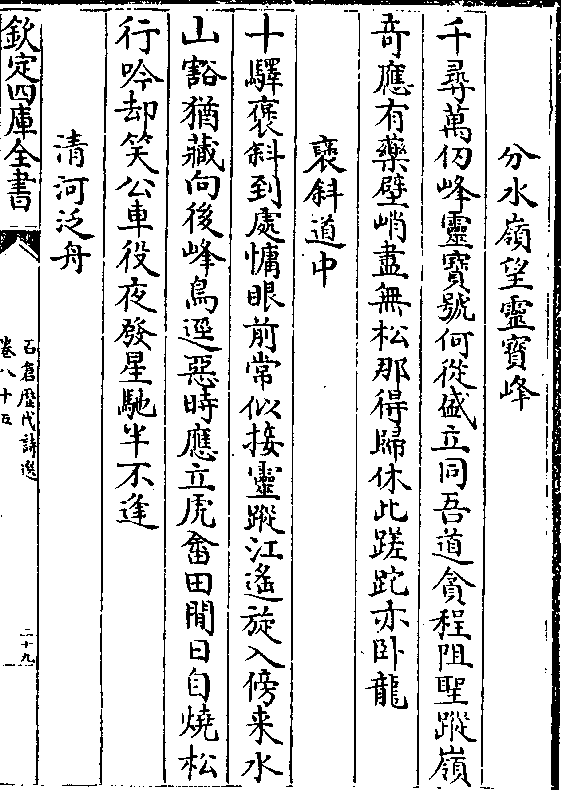 分水嶺望靈寳峰
千尋萬仞峰靈寳號何從盛立同吾道貪程阻聖蹤嶺
竒應有藥壁峭盡無松那得歸休此蹉跎亦卧龍
褒斜道中
十驛褒斜到處慵眼前常似接靈蹤江遙旋入傍来水
山豁猶藏向後峰鳥逕惡時應立虎畬田閒日自燒松
行吟却笑公車役夜發星馳半不逢
清河泛舟
欽定四庫全書
石倉歴代詩選
卷八十五
二十九